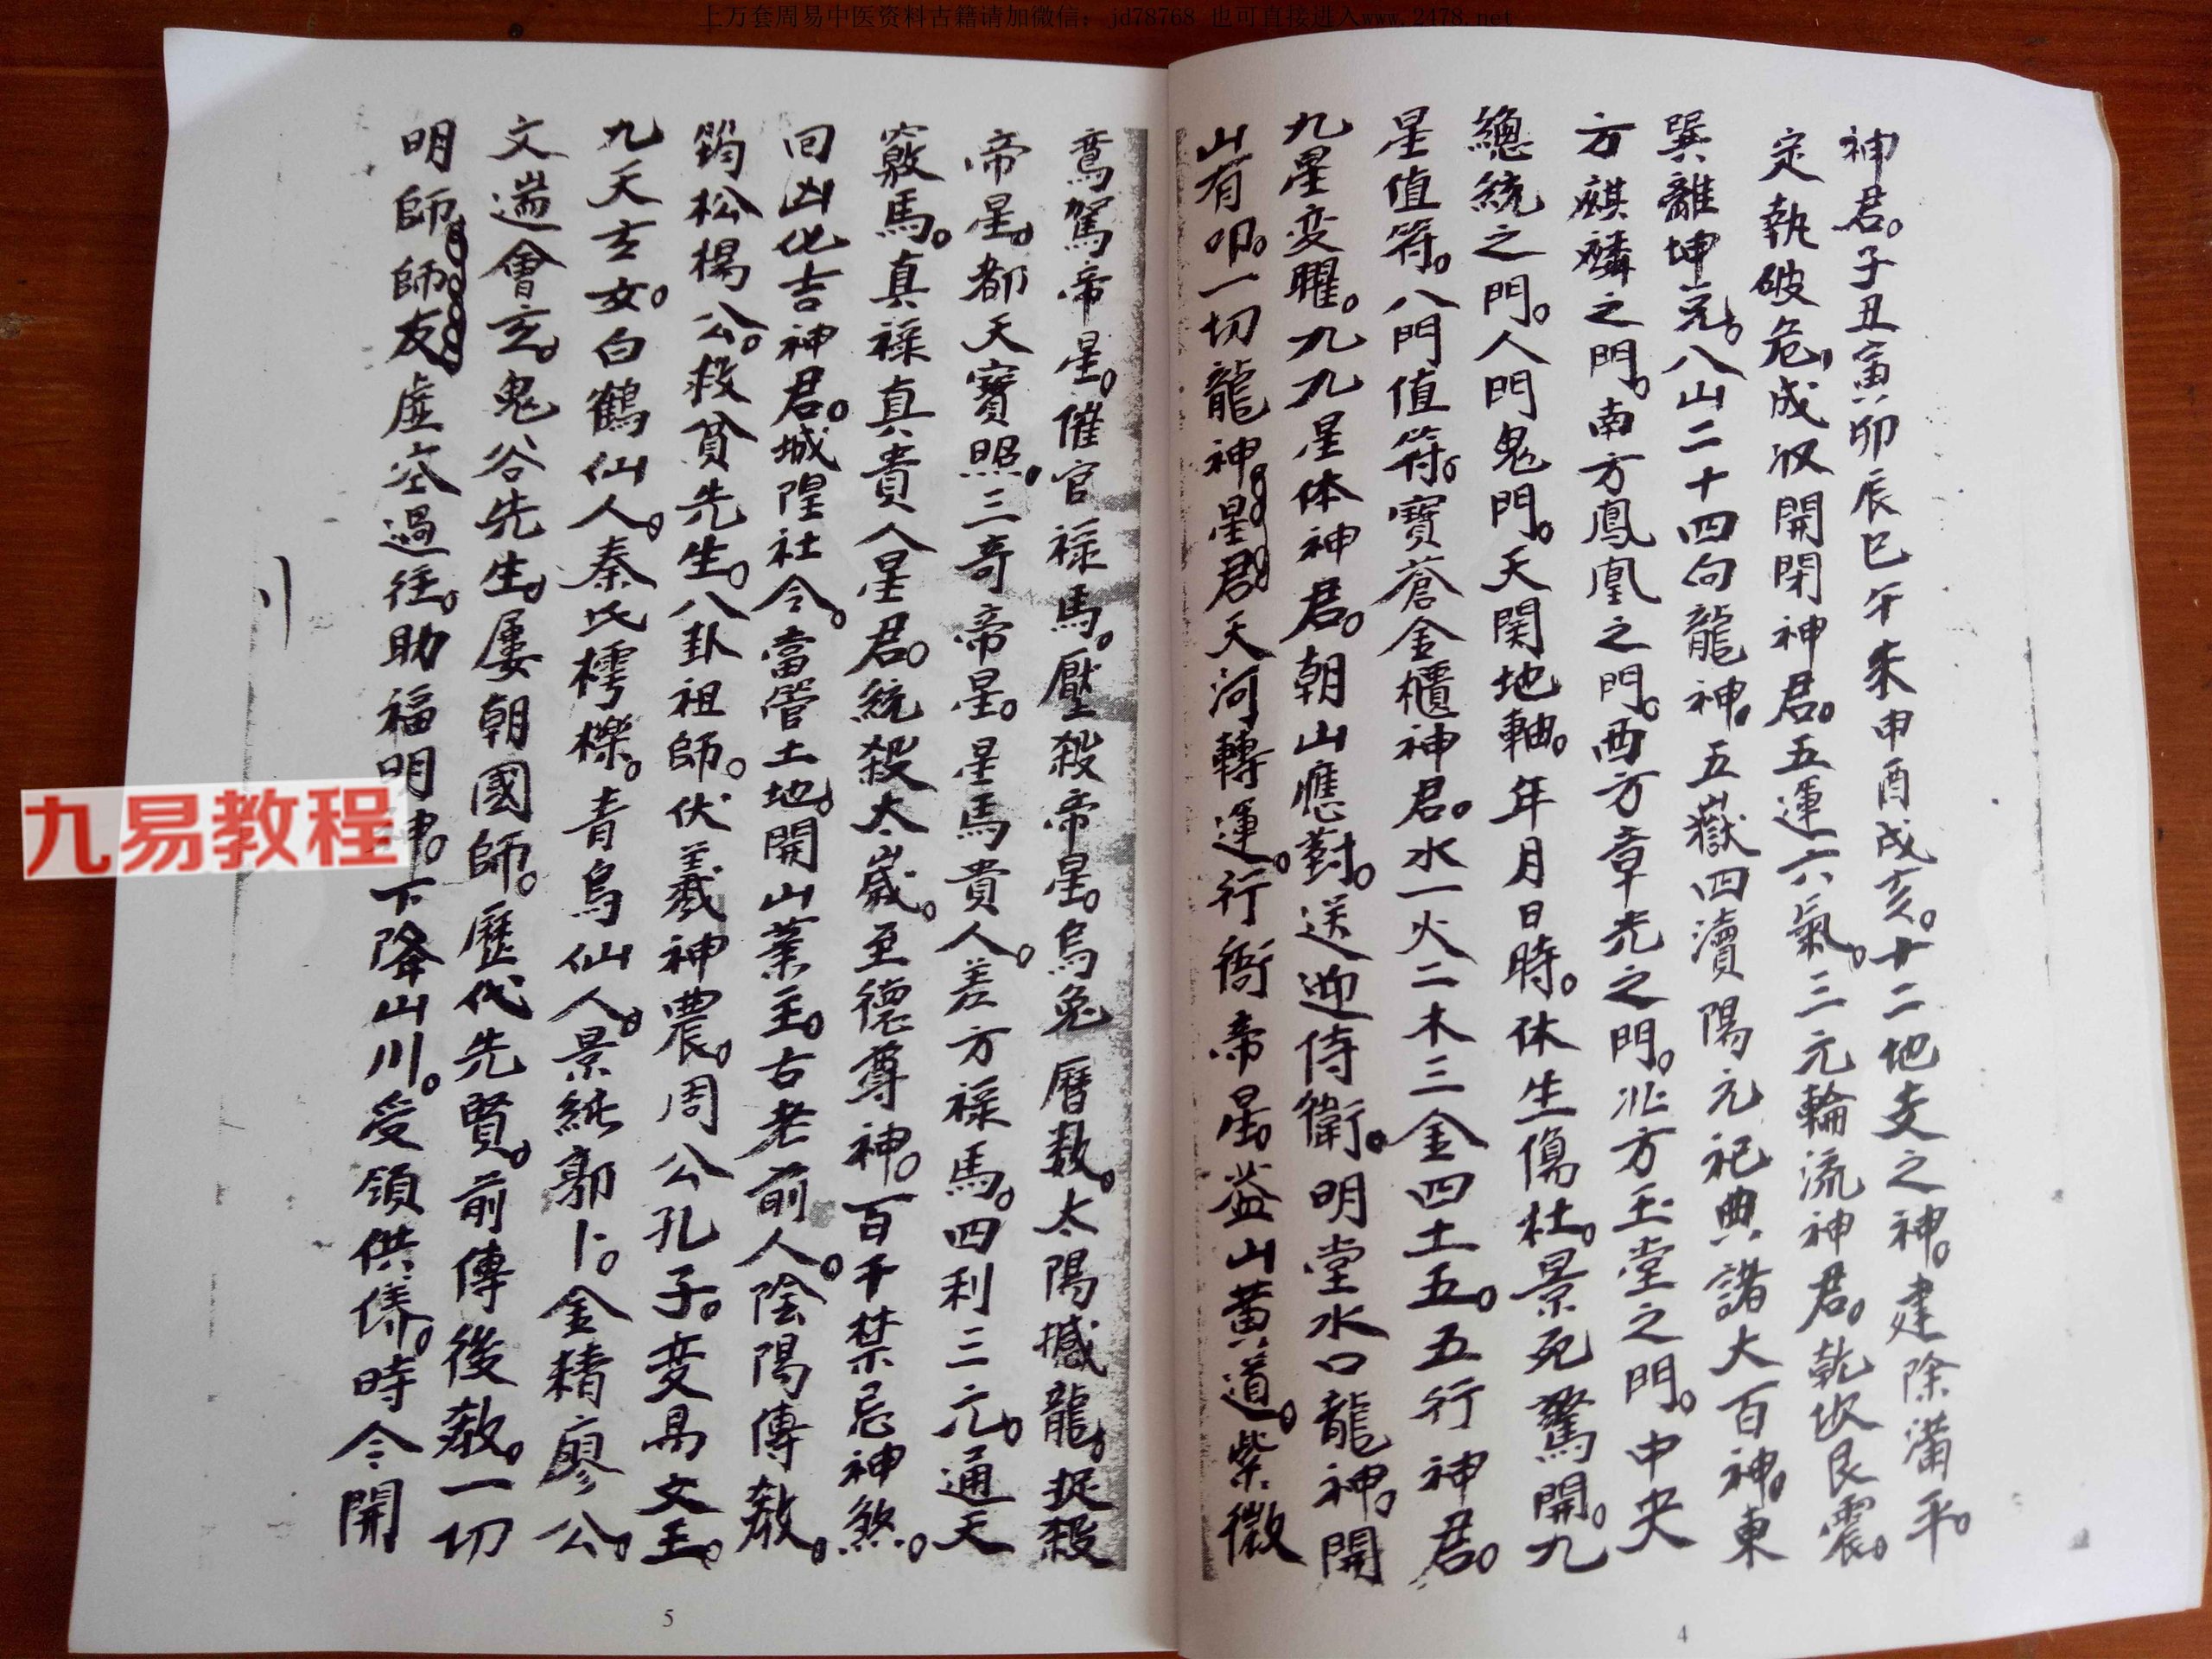 上万套周易中医资料古籍请加微信：jd78768 也可直接进入www.2478.net
神君。子丑寅卯辰巳午未申酉戌亥。十二地支之神。建除满平。
定執破危，成收開閉神君。五運六氣。三元輪流神君。乾坎艮震。
巽離坤兑。八山二十四向龍神。五嶽四瀆陽元祀典諸大百神。東
方麒麟之門。南方鳳凰之門。西方章光之門。北方玉堂之門。中央
總統之門。人門鬼門。天関地軸。年月日時。休生傷杜。景死驚開。九
星值符。八門值符。寶蒼金櫃神君。水一火二木三金四土五。五行神君。
九星变曜。九九星体神君。朝山應對。送迎侍衛。明堂水口龍神。開
山有叩。一切龍神。星君。天河轉運。行衙帝星。益山黄道。紫微
鸾駕帝星。催官禄馬。壓殺帝星。烏兔曆数。太陽撼龍。捉殺
帝星。都天寶照。三奇帝星。星馬貴人。差方禄馬。四利三元。通天
竅馬。真禄真貴人星君。統殺太歲。至德尊神。百千禁忌神煞。
回凶化吉神君。城隍社令。當管土地。開山業主。古老前人。陰陽傳教。
筠松楊公。救貧先生。八卦祖師。伏羲神農。周公孔子。变易文王。
九天玄女。白鶴仙人。秦氏樗櫟。青烏仙人。景純郭卜。金精廖公。
文遄會玄。鬼谷先生。屡朝國師。歷代先賢。前傳後教。一切
明師師友虚空過往。助福明神。下降山川。受領供俻。時今開
九易教程
5
4